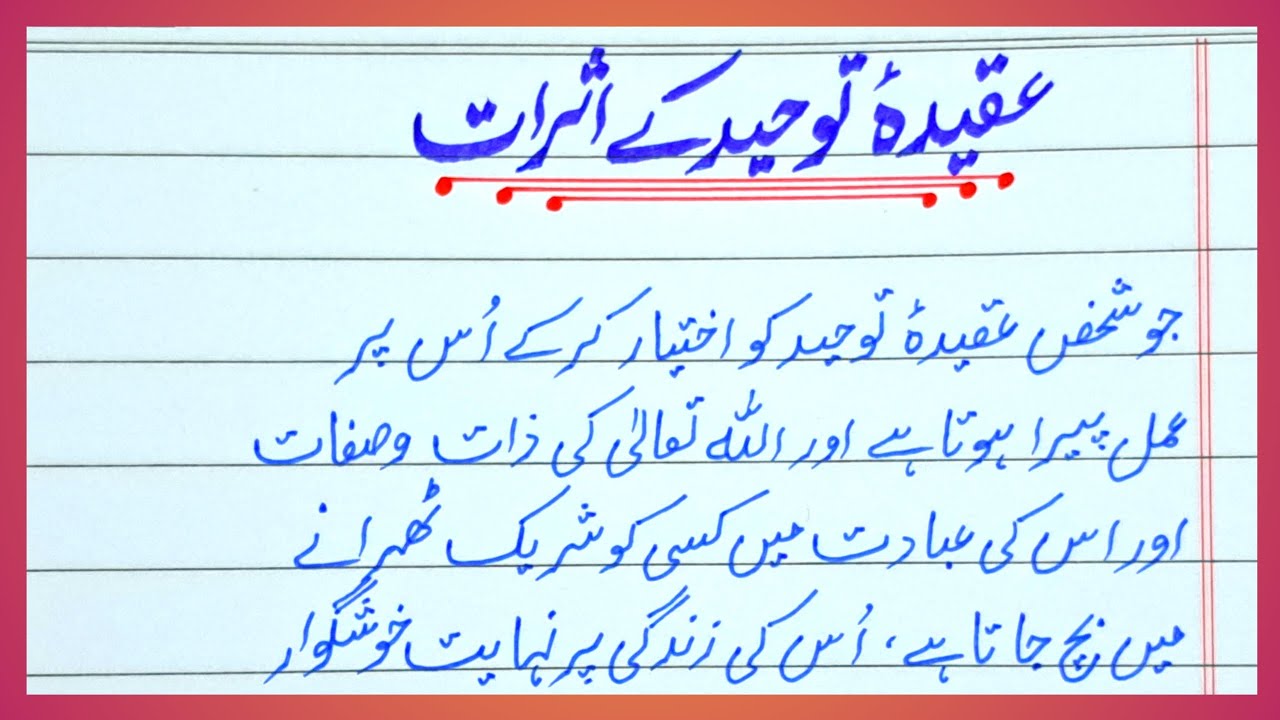 عقیدۂ توحید کے اثرات
جو شخص عقیدۂ توحید کو اختیار کر کے اُس پر
عمل پیرا ہوتا ہے اور اللہ تعالیٰ کی ذات وصفات
اور اس کی عبادت میں کسی کو شریک ٹھہرانے
میں بچ جاتا ہے، اُس کی زندگی پر نہایت خوشگوار